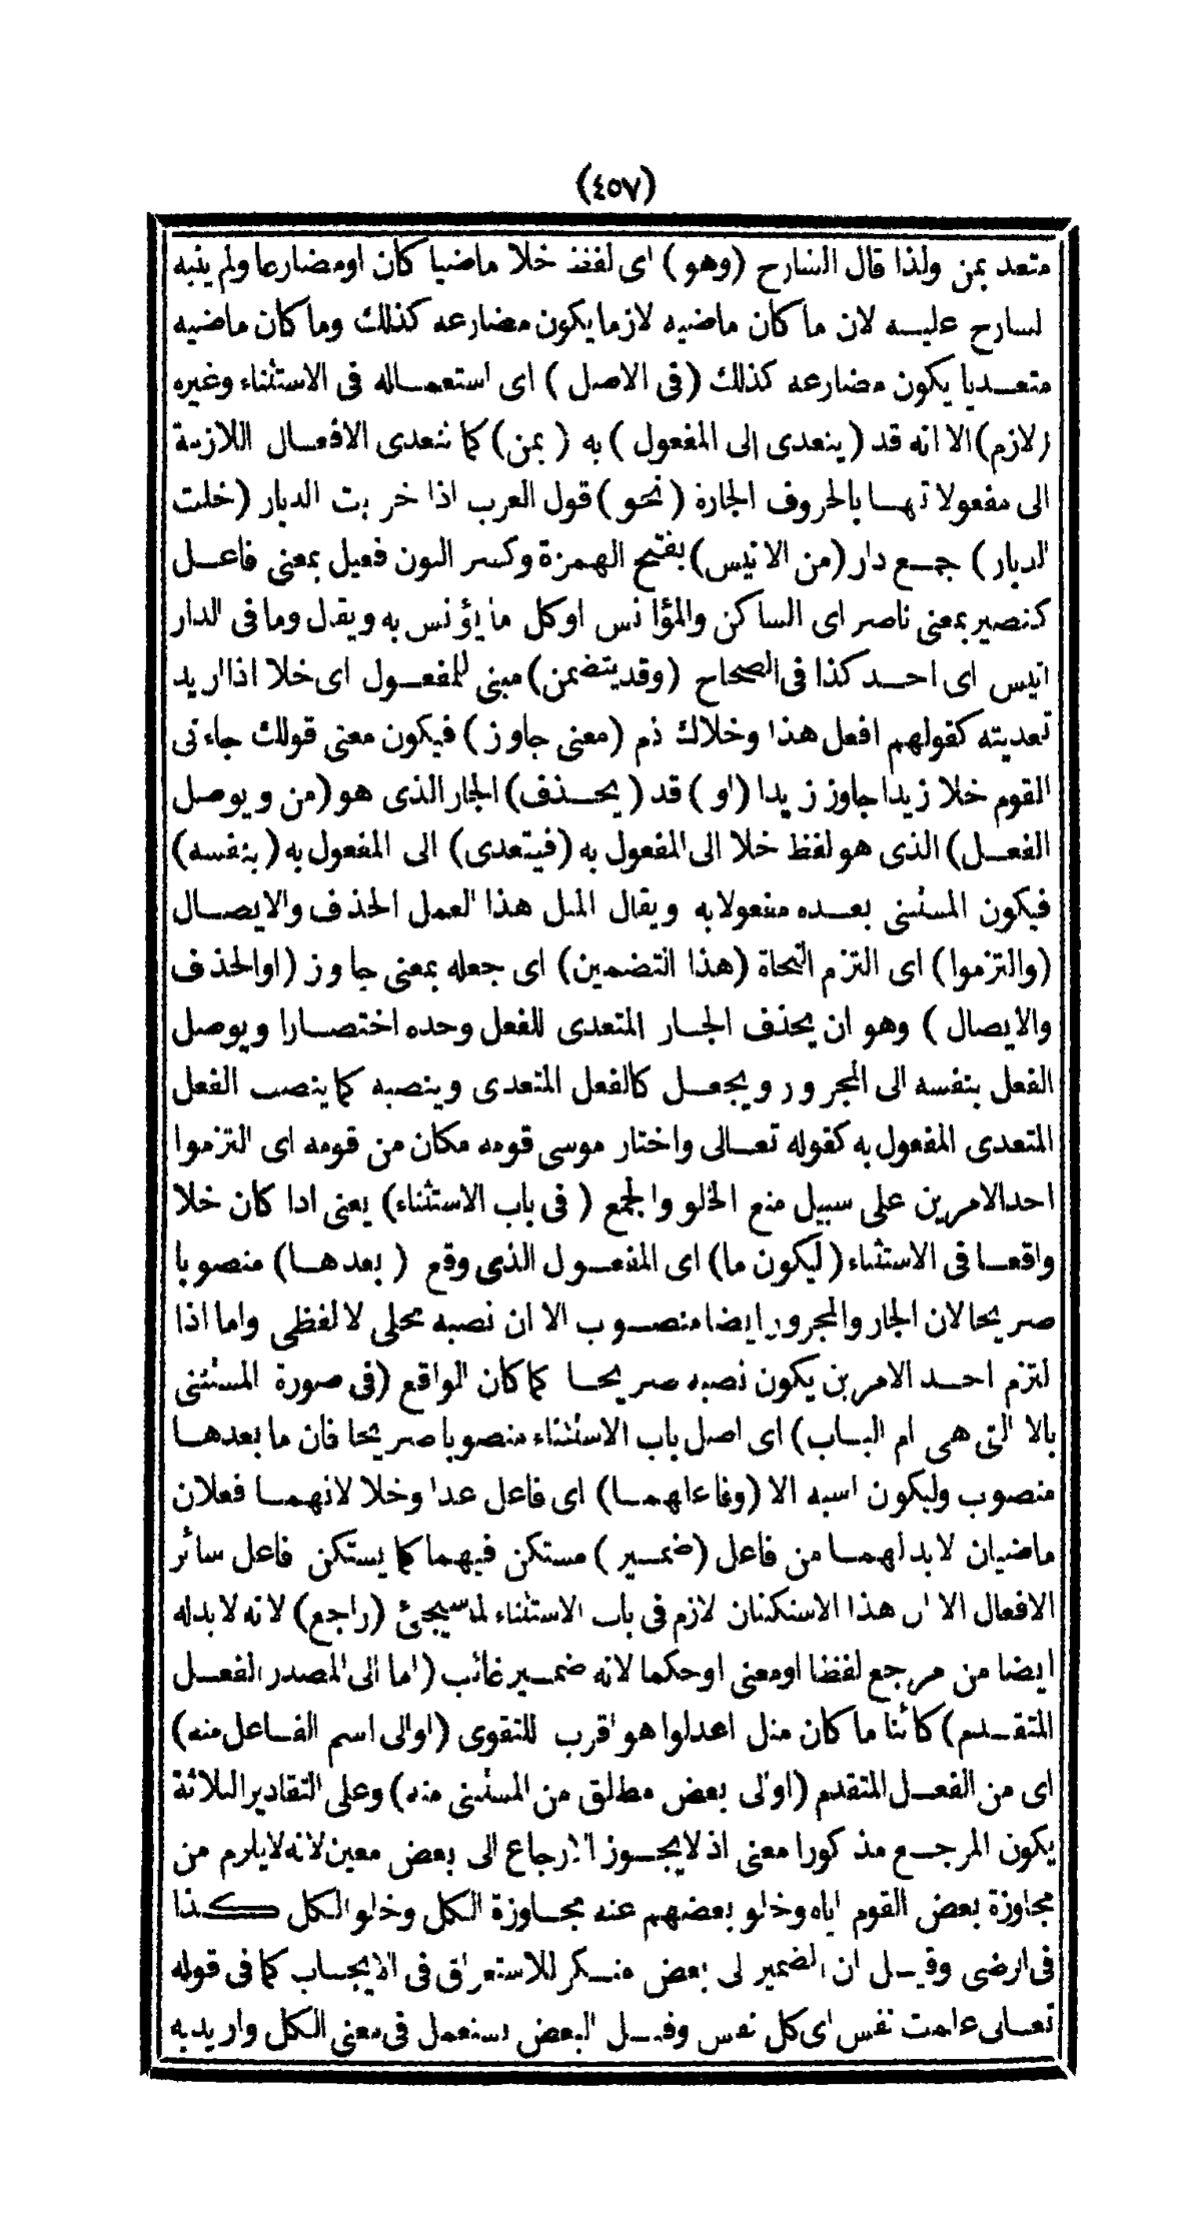 (٤٥٧)
متعد بمن ولذا قال الشارح (وهو) اى لفظ خلا ماضيا كان اومضارعا ولم ينبه
لشارح عليه لان ما كان ماضيه لازما يكون مضارعه كذلك وما كان ماضيه
متعديا يكون مضارعه كذلك (فى الاصل) اى استعماله فى الاستثناء وغيره
(لازم) الا انه قد (يتعدى الى المفعول) به (بمن) كما تتعدى الافعال اللازمة
الى مفعولاتها بالحروف الجارة (نحو) قول العرب اذا خربت الديار (خلت
الديار) جمع دار (من الانيس) بفتح الهمزة وكسر النون فعيل بمعنى فاعل
كنصير بمعنى ناصر اى الساكن والمؤانس اوكل ما يؤنس به ويقال وما فى الدار
انيس اى احد كذا فى الصحاح (وقد يتضمن) مبنى للمفعول اى خلا اذا اريد
تعديته كقولهم افعل هذا وخلاك ذم (معنى جاوز) فيكون معنى قولك جاءنى
القوم خلا زيدا جاوز زيدا (او) قد (يحذف) الجار الذى هو (من ويوصل
الفعل) الذى هو لفظ خلا الى المفعول به (فيتعدى) الى المفعول به (بنفسه)
فيكون المستثنى بعده مفعولا به ويقال لمثل هذا العمل الحذف والايصال
(والتزموا) اى التزم النحاة (هذا التضمين) اى جعله بمعنى جاوز (اوالحذف
والايصال) وهو ان يحذف الجار المتعدى للفعل وحده اختصارا ويوصل
الفعل بنفسه الى المجرور ويجعل كالفعل المتعدى وينصبه كما ينصب الفعل
المتعدى المفعول به كقوله تعالى واختار موسى قومه مكان من قومه اى التزموا
احد الامرين على سبيل منع الخلو والجمع (فى باب الاستثناء) يعنى اذا كان خلا
واقعا فى الاستثناء (ليكون ما) اى المفعول الذى وقع (بعدها) منصوبا
صريحا لان الجار والمجرور ايضا منصوب الا ان نصبه محلى لا لفظى واما اذا
لتزم احد الامرين يكون نصبه صريحا كما كان الواقع (فى صورة المستثنى
بالا التى هى ام الباب) اى اصل باب الاستثناء منصوبا صريحا فان ما بعدها
منصوب وليكون اشبه الا (وفاعلهما) اى فاعل عدا وخلا لانهما فعلان
ماضيان لابد لهما من فاعل (ضمير) مستكن فيهما كما يستكن فاعل سائر
الافعال الا ان هذا الاستكنان لازم فى باب الاستثناء لما سيجئ (راجع) لانه لابدله
ايضا من مرجع لفظا اومعنى اوحكما لانه ضمير غائب (اما الى المصدر الفعل
المتقدم) كائنا ما كان مثل اعدلوا هو اقرب للتقوى (اوالى اسم الفاعل منه)
اى من الفعل المتقدم (اوالى بعض مطلق من المستثنى منه) وعلى التقادير الثلاثة
يكون المرجع مذكورا معنى اذ لا يجوز الارجاع الى بعض معين لانه لا يلزم من
مجاوزة بعض القوم اياه وخلو بعضهم عنه مجاوزة الكل وخلو الكل كذا
فى ارضى وقيل ان الضمير لى بعض منكر للاستغراق فى الايجاب كما فى قوله
تعالى علمت نفس اى كل نفس وقيل البعض يستعمل فى معنى الكل واريد به